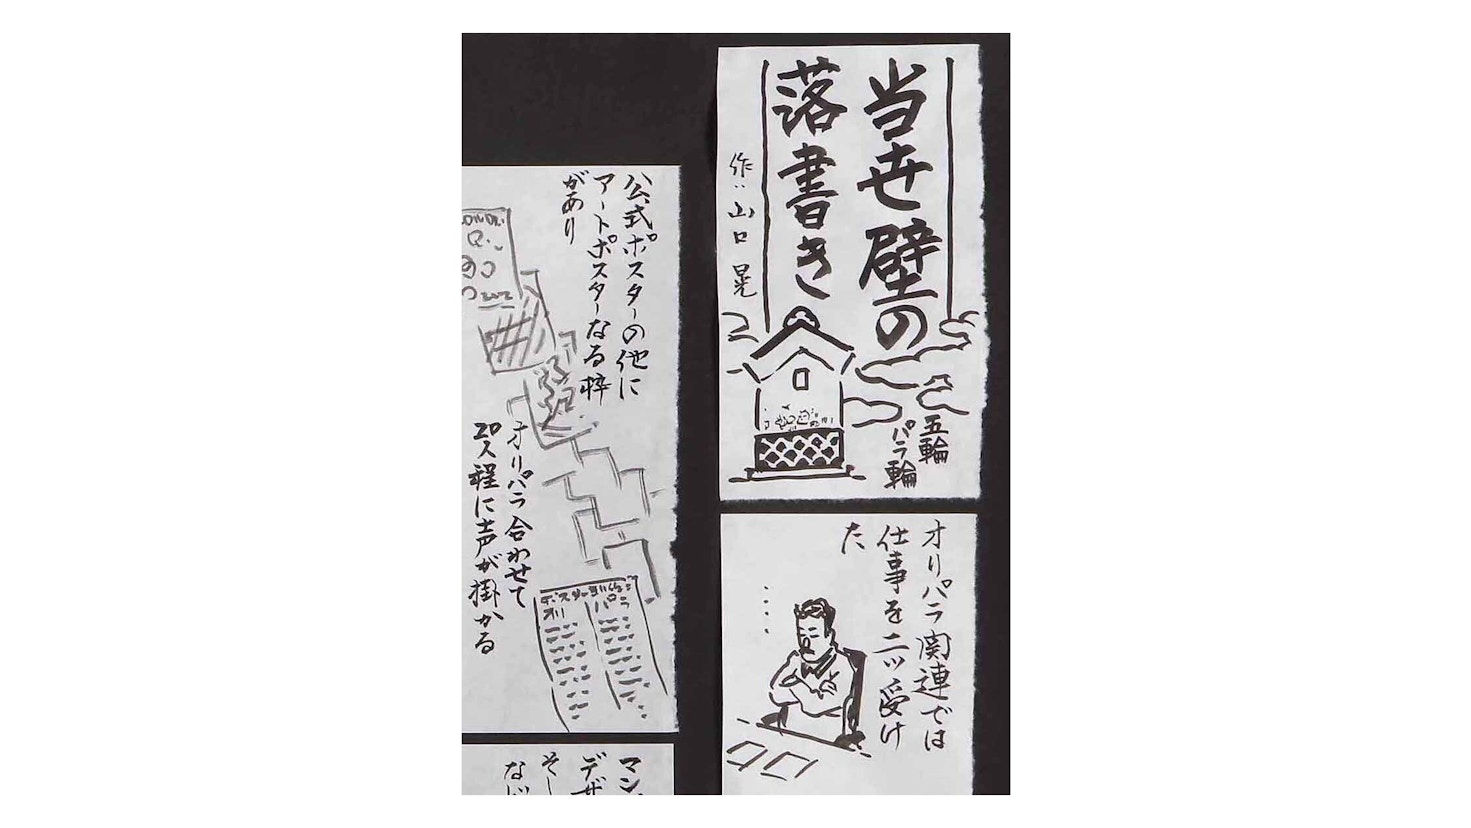 当世壁の
落書き
作:山口晃
五輪
パラ輪
オリパラ関連では
仕事を二ツ受け
た
公式ポスターの他に
アートポスターなる枠
があり
オリパラ合わせて
20人程に声が掛かる
マン
デザ
そし